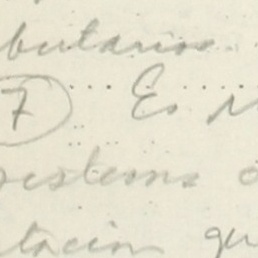 butarios
7 Es
istema
tacion qu